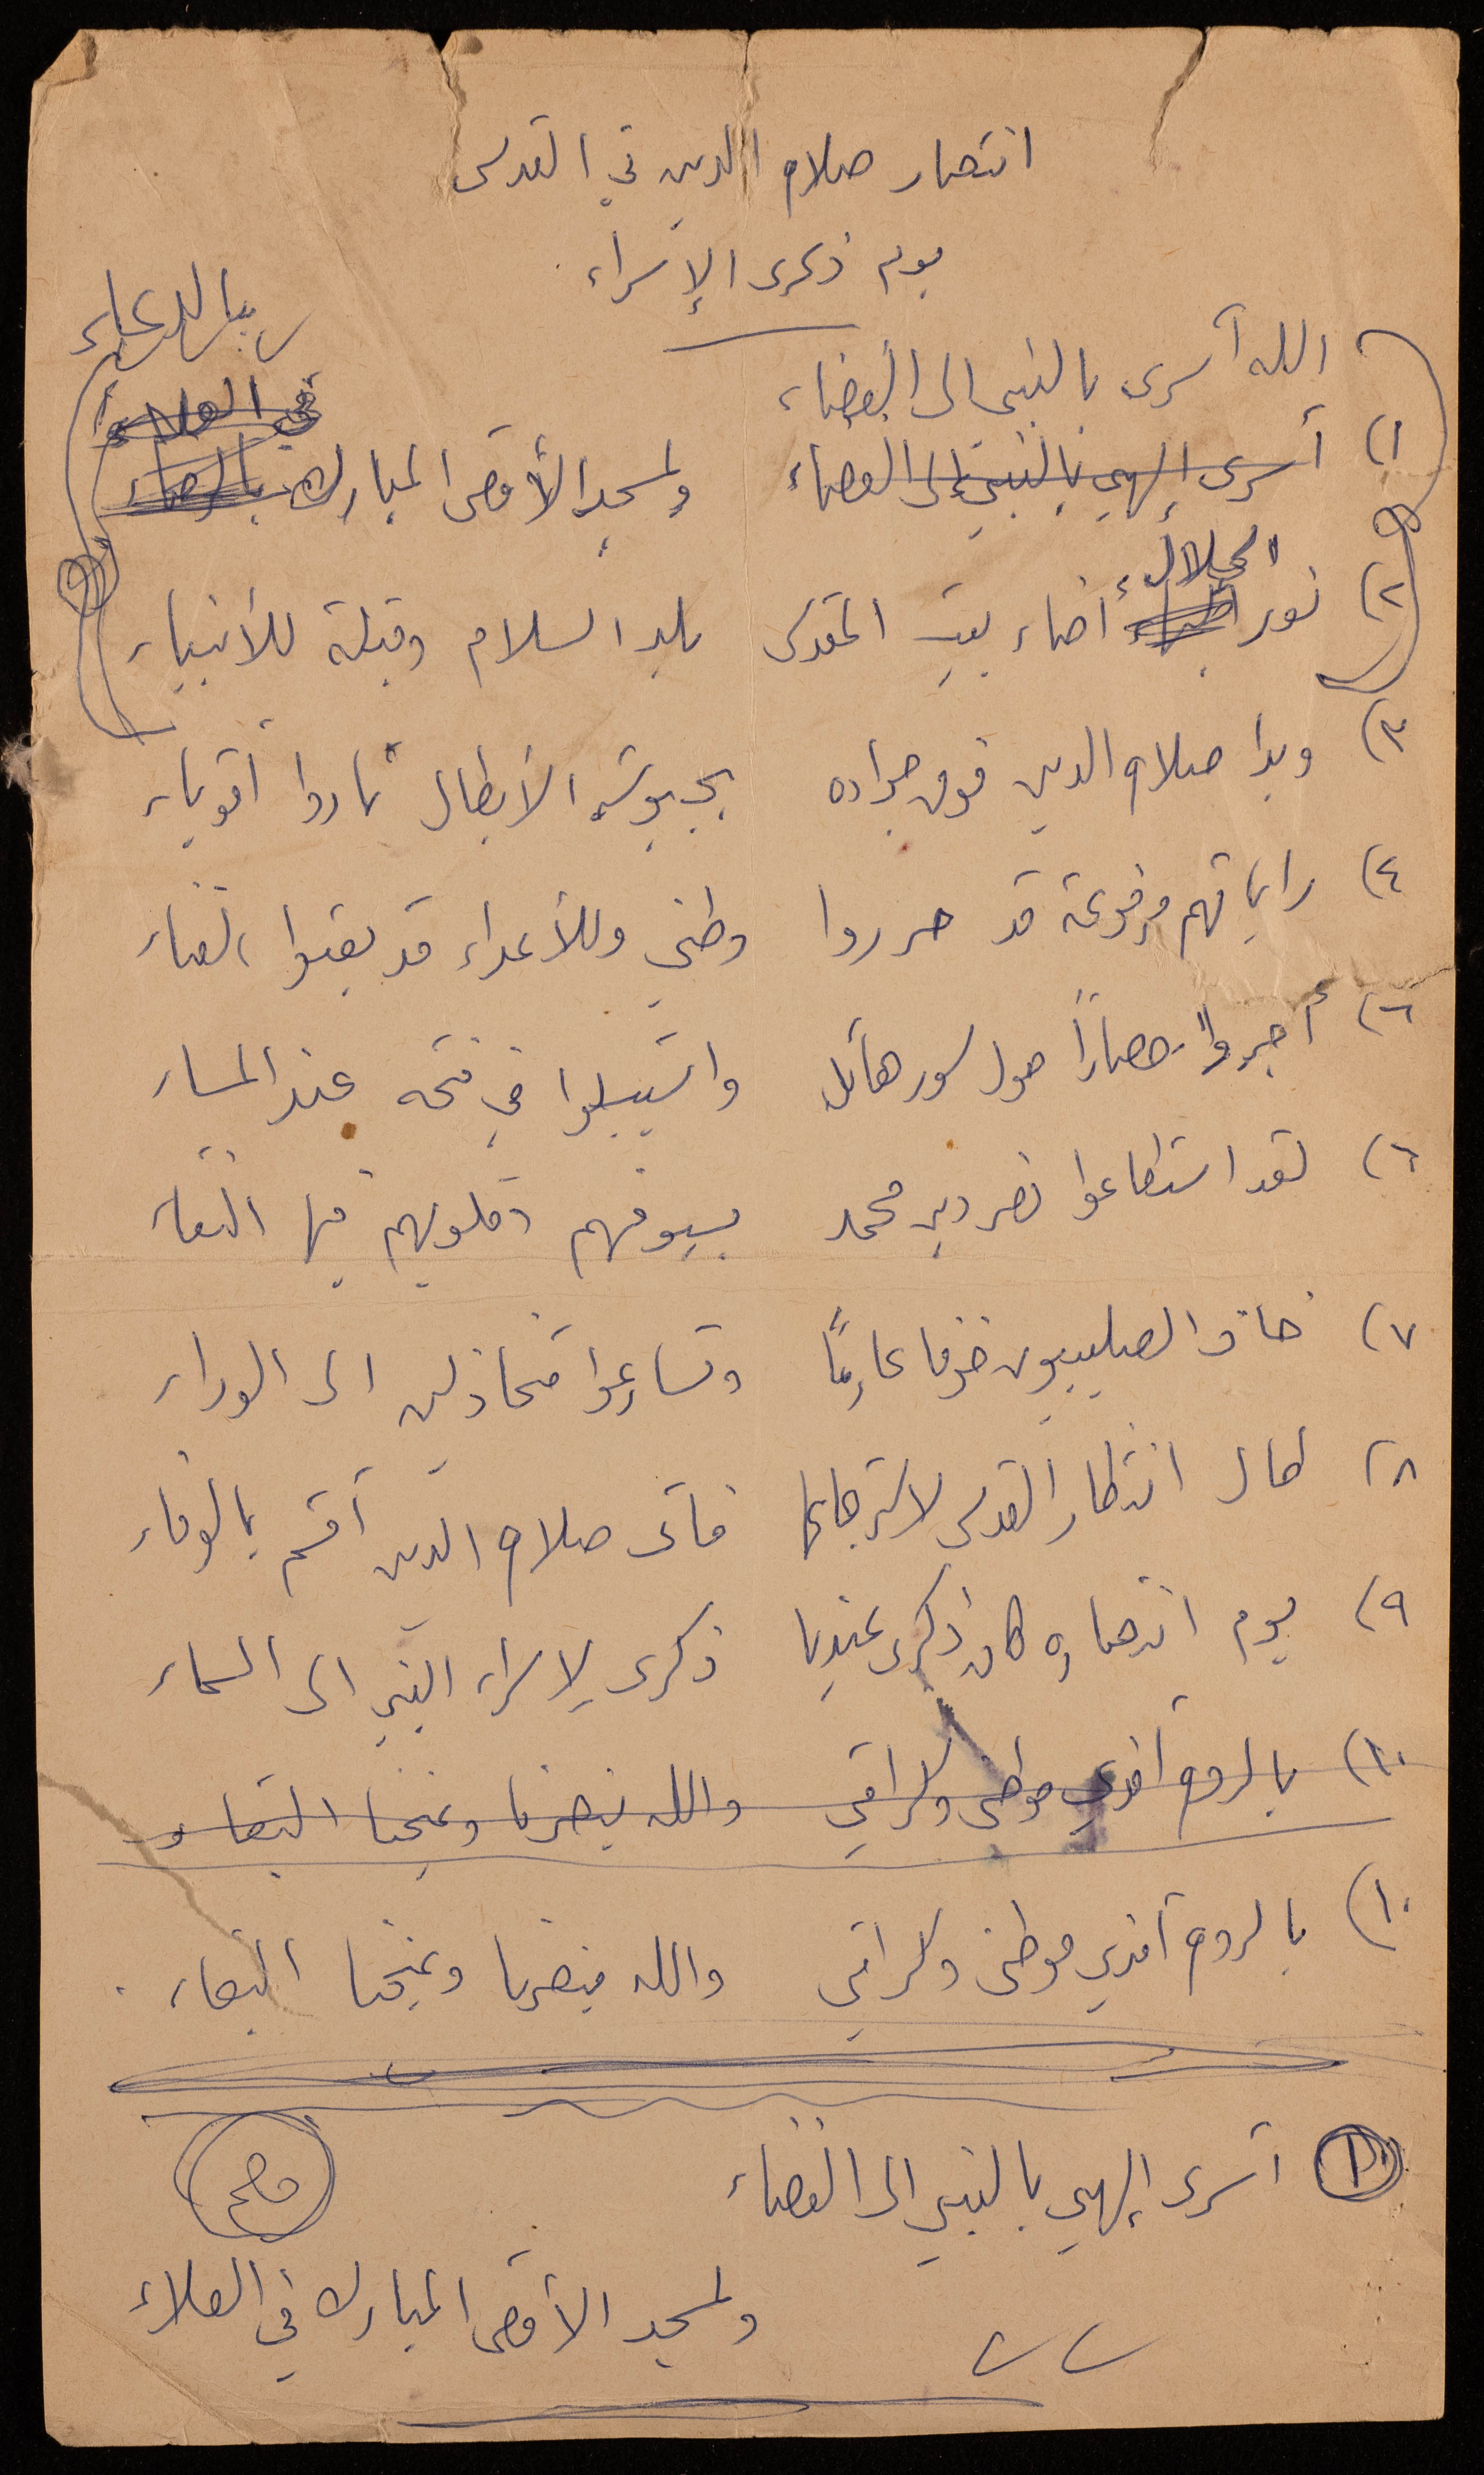 انتصار صلاح الدين في القدس
يوم ذكرى الإسراء
بالدعاء
الله أسرى بالنبي الى الفضاء
في العلاء
١) أسرى إلهي بالنبي إلى الفضاء ولمسجد الأقصى المبارك
الجلال
٢) نور أضاء بيت المقدس بلد السلام وقبلة للأنبياء
٣) وبدا صلاح الدين فوق جواده بجيوشه الأبطال ثاروا أقوياء
٤) راياتهم مرفوعة قد حرروا وطني وللأعداء قد
٦) أجروا حصاراً حول سور هائل في فتحه عند المساء
٦) لقد استطاعوا نصر دين محمد بسيوفهم وقلوبهم فيها النقاء
٧) خاف الصليبيون خوفا عارمًا وتسارعوا متخاذلين الى الوراء
٨) طال انتظار القدس لاسترجاعها فأتى صلاح الدين أقسم بالوفاء
٩) يوم انتصاره كان ذكرى عندنا ذكرى لإسراء النبي الى السماء
١٠) بالروح أفدي موطني وكرامتي والله ينصرنا ويمنحنا البقاء
١٠) بالروح أفدي موطني وكرامتي والله ينصرنا ويمنحنا البقاء .
١ أسرى إلهي بالنبي الى الفضاء
ولمسجد الأقصى المبارك في العلاء